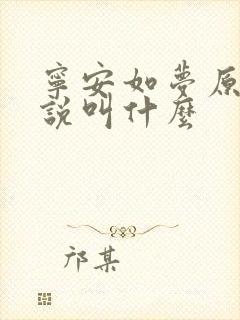 寧安如夢原
說叫什麼
邝某